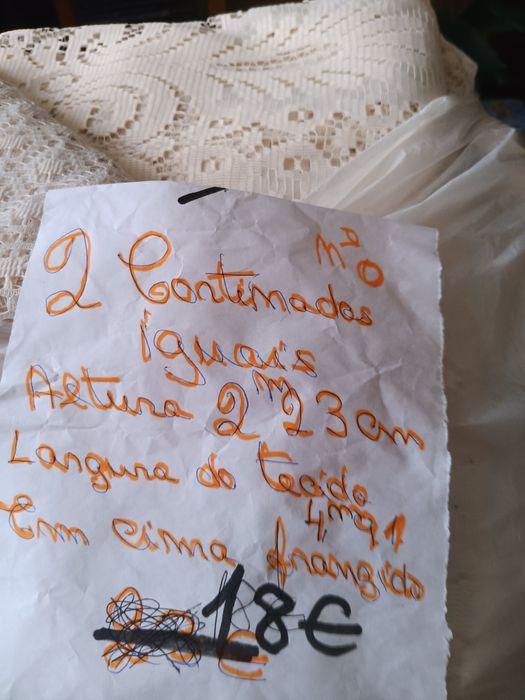 nº 0
2 Cortinados
iguais
Altura 2m 23 cm
Largura do tecido
4,m91
Em cima franzido
18€